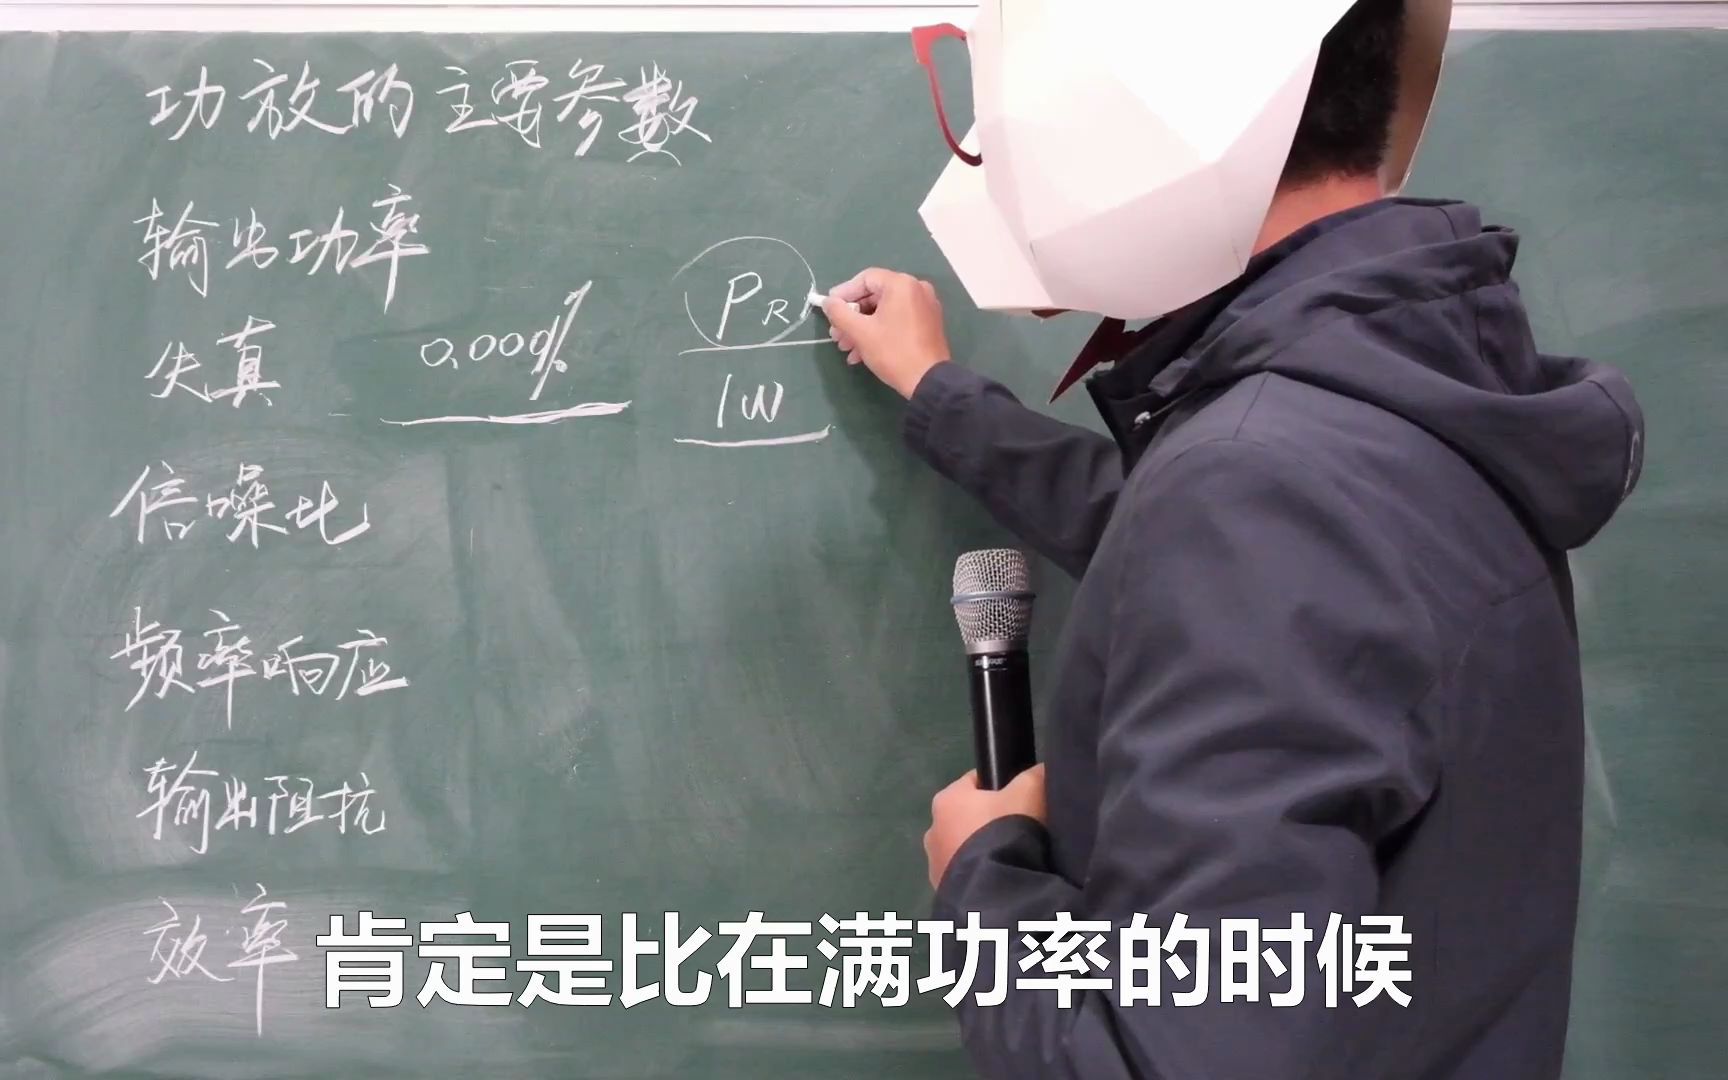 功放的主要参数
输出功率
失真 0.00%
PR
1W
信噪比
频率响应
输出阻抗
效率
肯定是比在满功率的时候